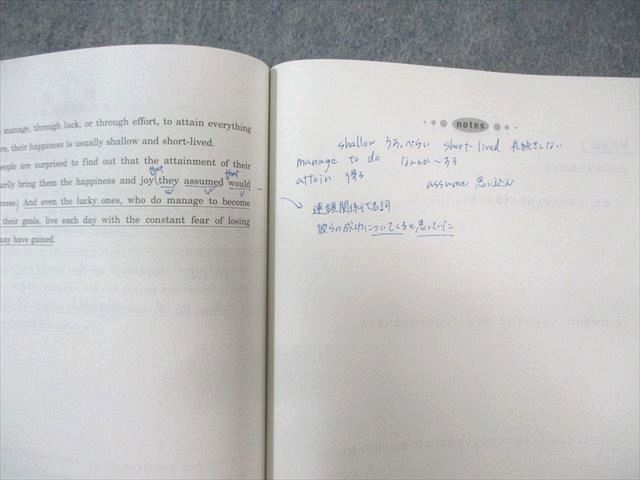 manage, through luck, or through effort, to attain everything
re, their happiness is usually shallow and short-lived.
eople are surprised to find out that the attainment of their
that that
arily bring them the happiness and joy (they assumed would
ccess. And even the lucky ones, who do manage to become
their goals, live each day with the constant fear of losing
may have gained.
notes
shallow うすっぺらい short-lived 長続きしない
manage to do なんとか〜する
attain 得る assume 思い込む
連鎖関係代名詞
彼らの成功についてくると思っていた